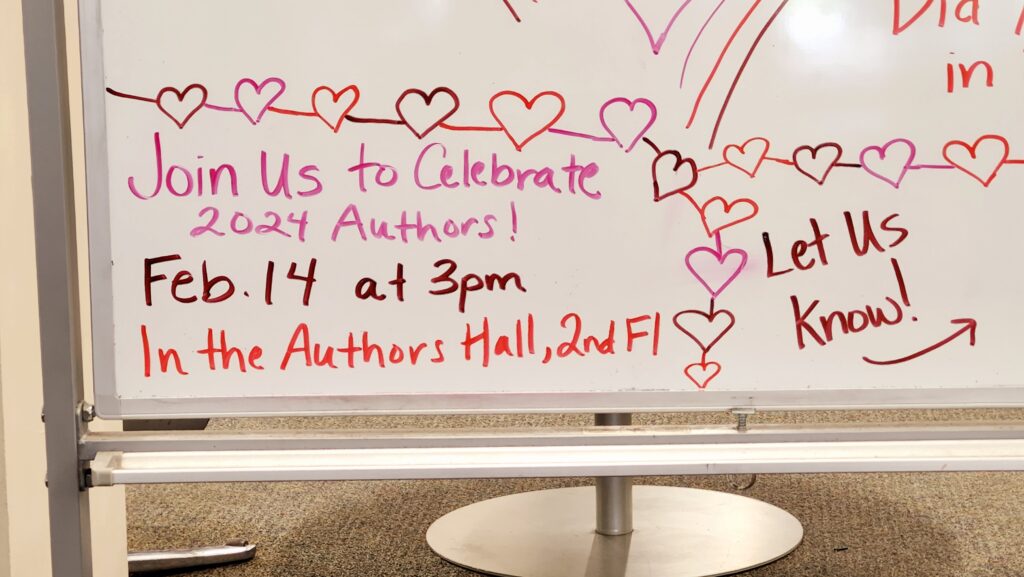 Join Us to Celebrate
2024 Authors!
Feb. 14 at 3pm
In the Authors Hall, 2nd Fl
Did
in
Let Us
Know!